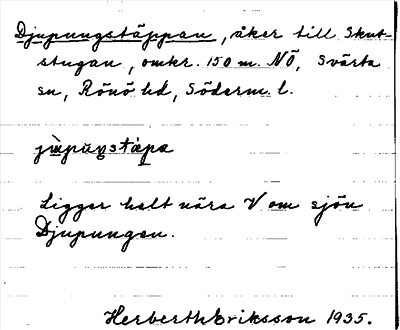 Djupungstäppan, åker till Skut-
stugan, omkr. 150 m. NÖ, Svärta
sn, Rönö hd, Söderm. l.
jùpuŋstäpa
Ligger helt nära V om sjön
Djupungen.
Herberth Eriksson 1935.